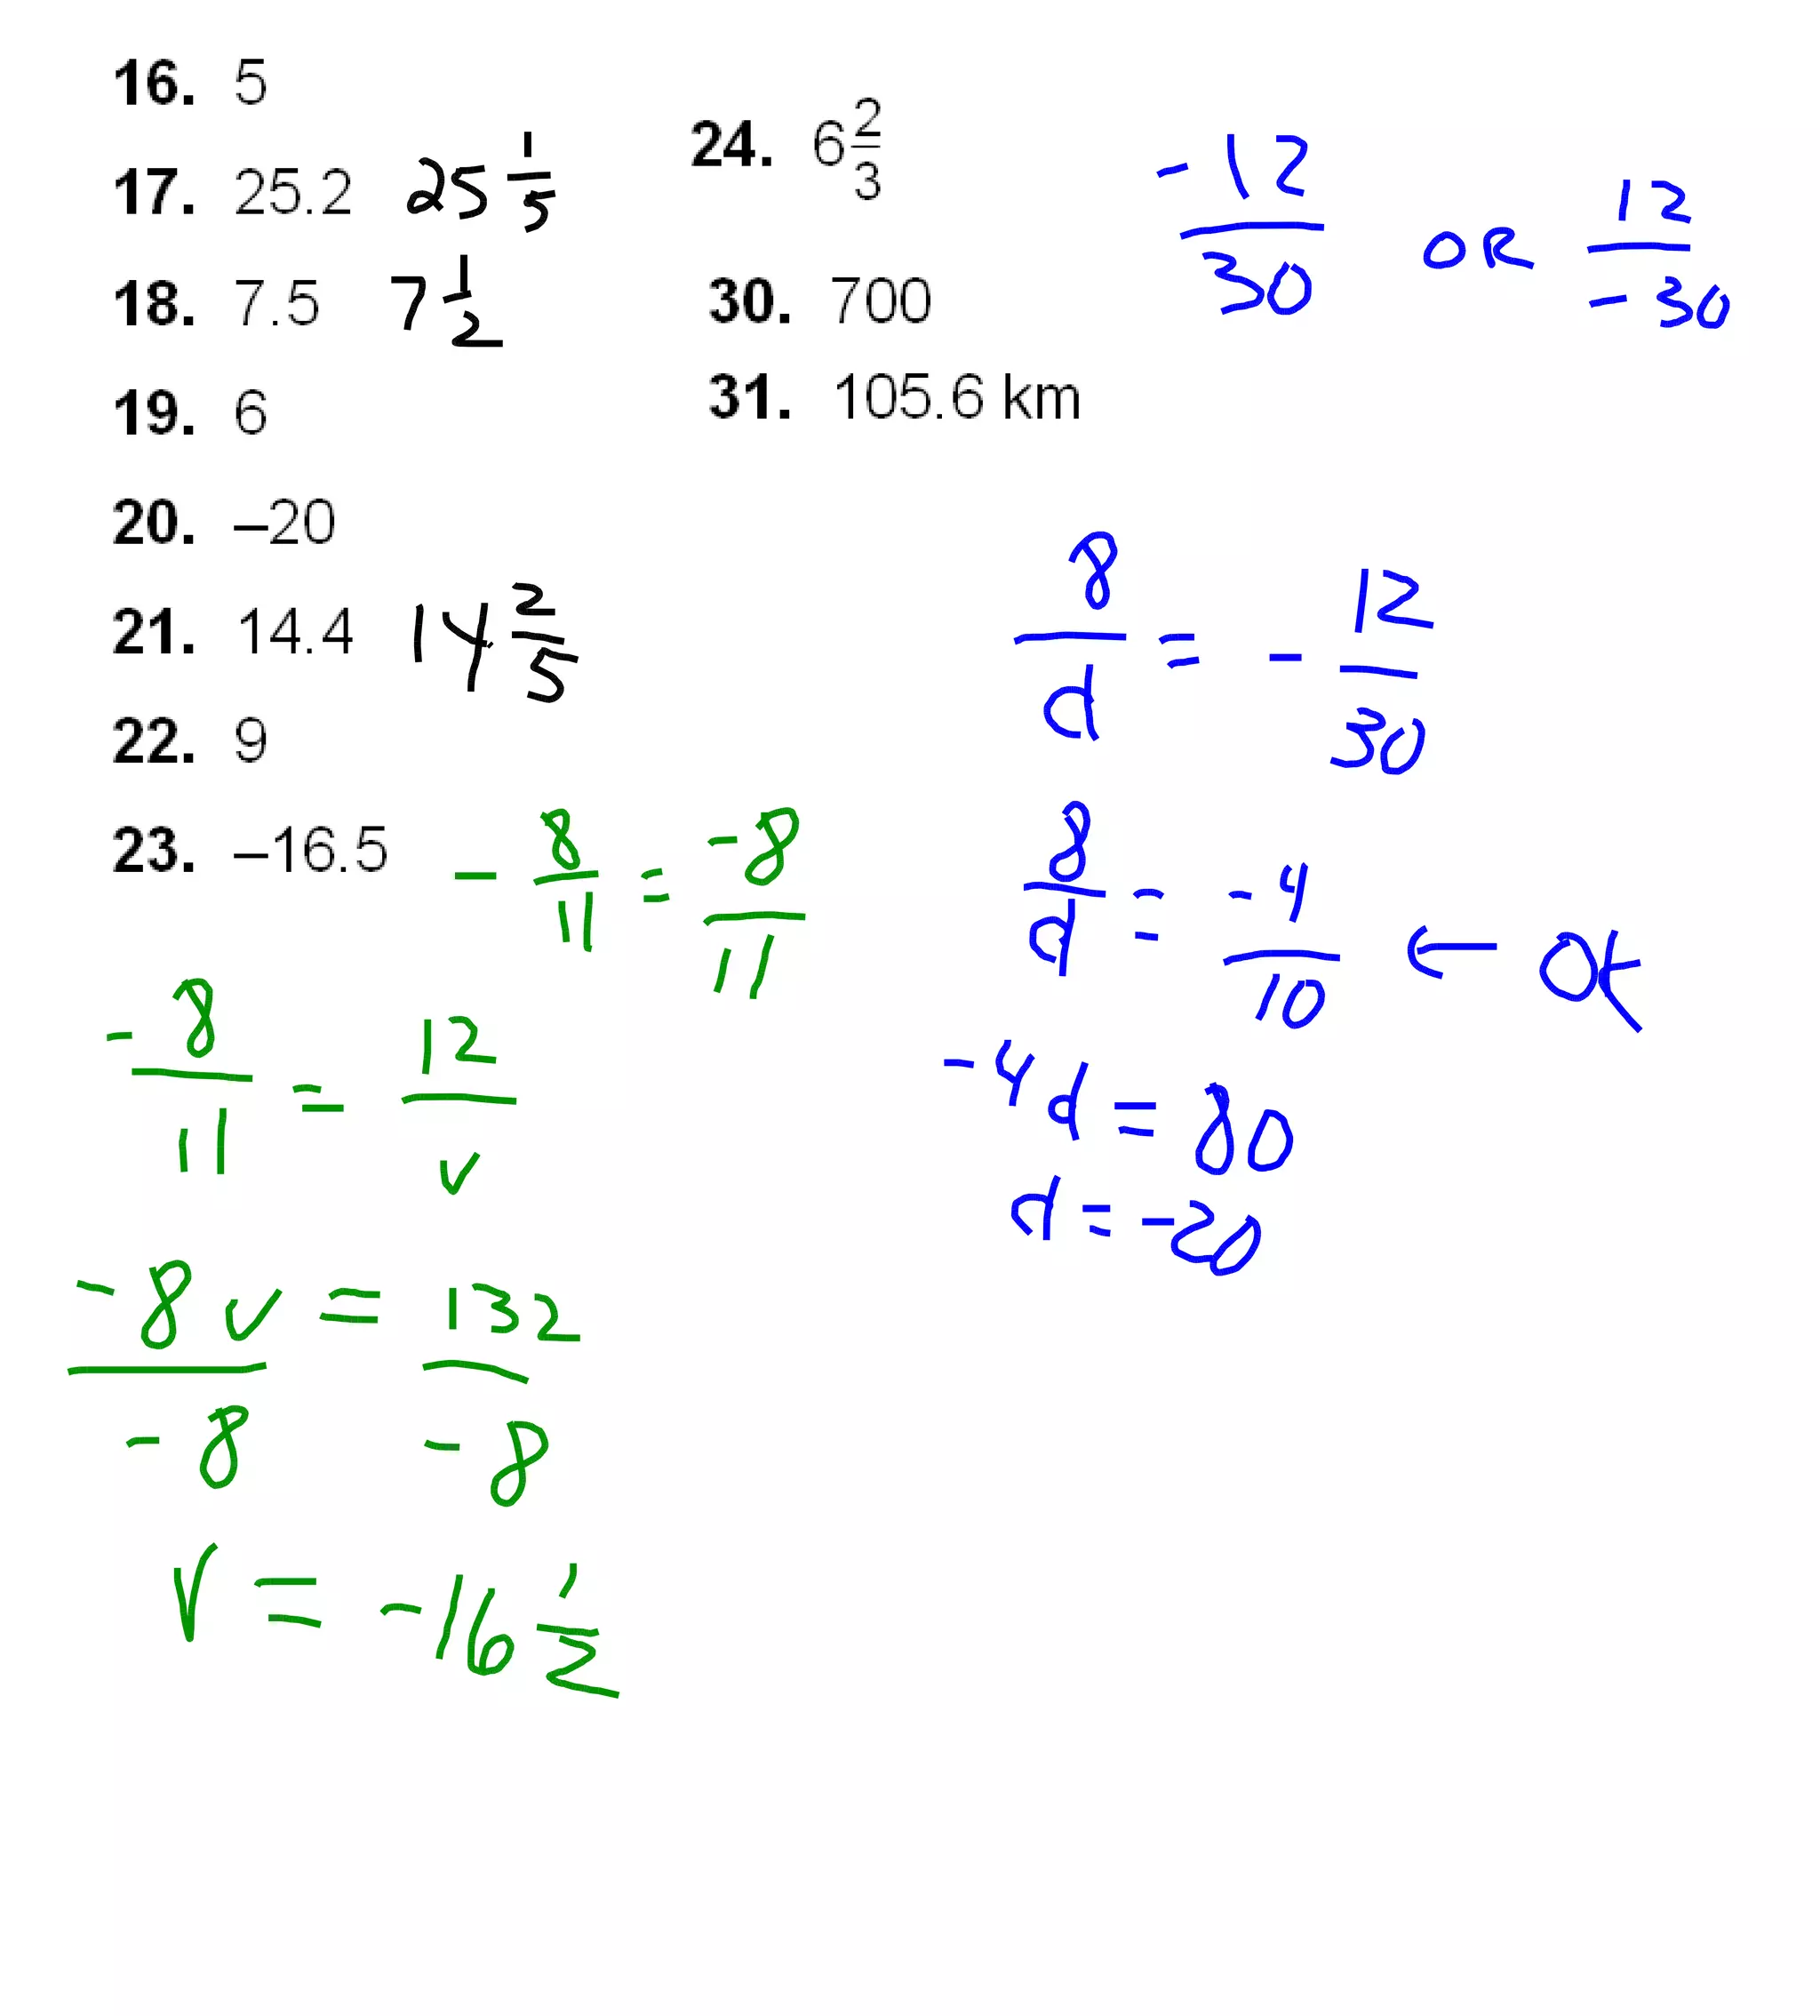 16. 5
17. 25.2 25 1/5
18. 7.5 7 1/2
19. 6
20. –20
21. 14.4 14 2/5
22. 9
23. –16.5
24. 6 2/3
30. 700
31. 105.6 km
-12/30 OR 12/-30
8/d = - 12/30
8/d = -4/10 ← OK
-4d = 80
d = -20
- 8/11 = -8/11
-8/11 = 12/v
-8v/-8 = 132/-8
v = -16 1/2